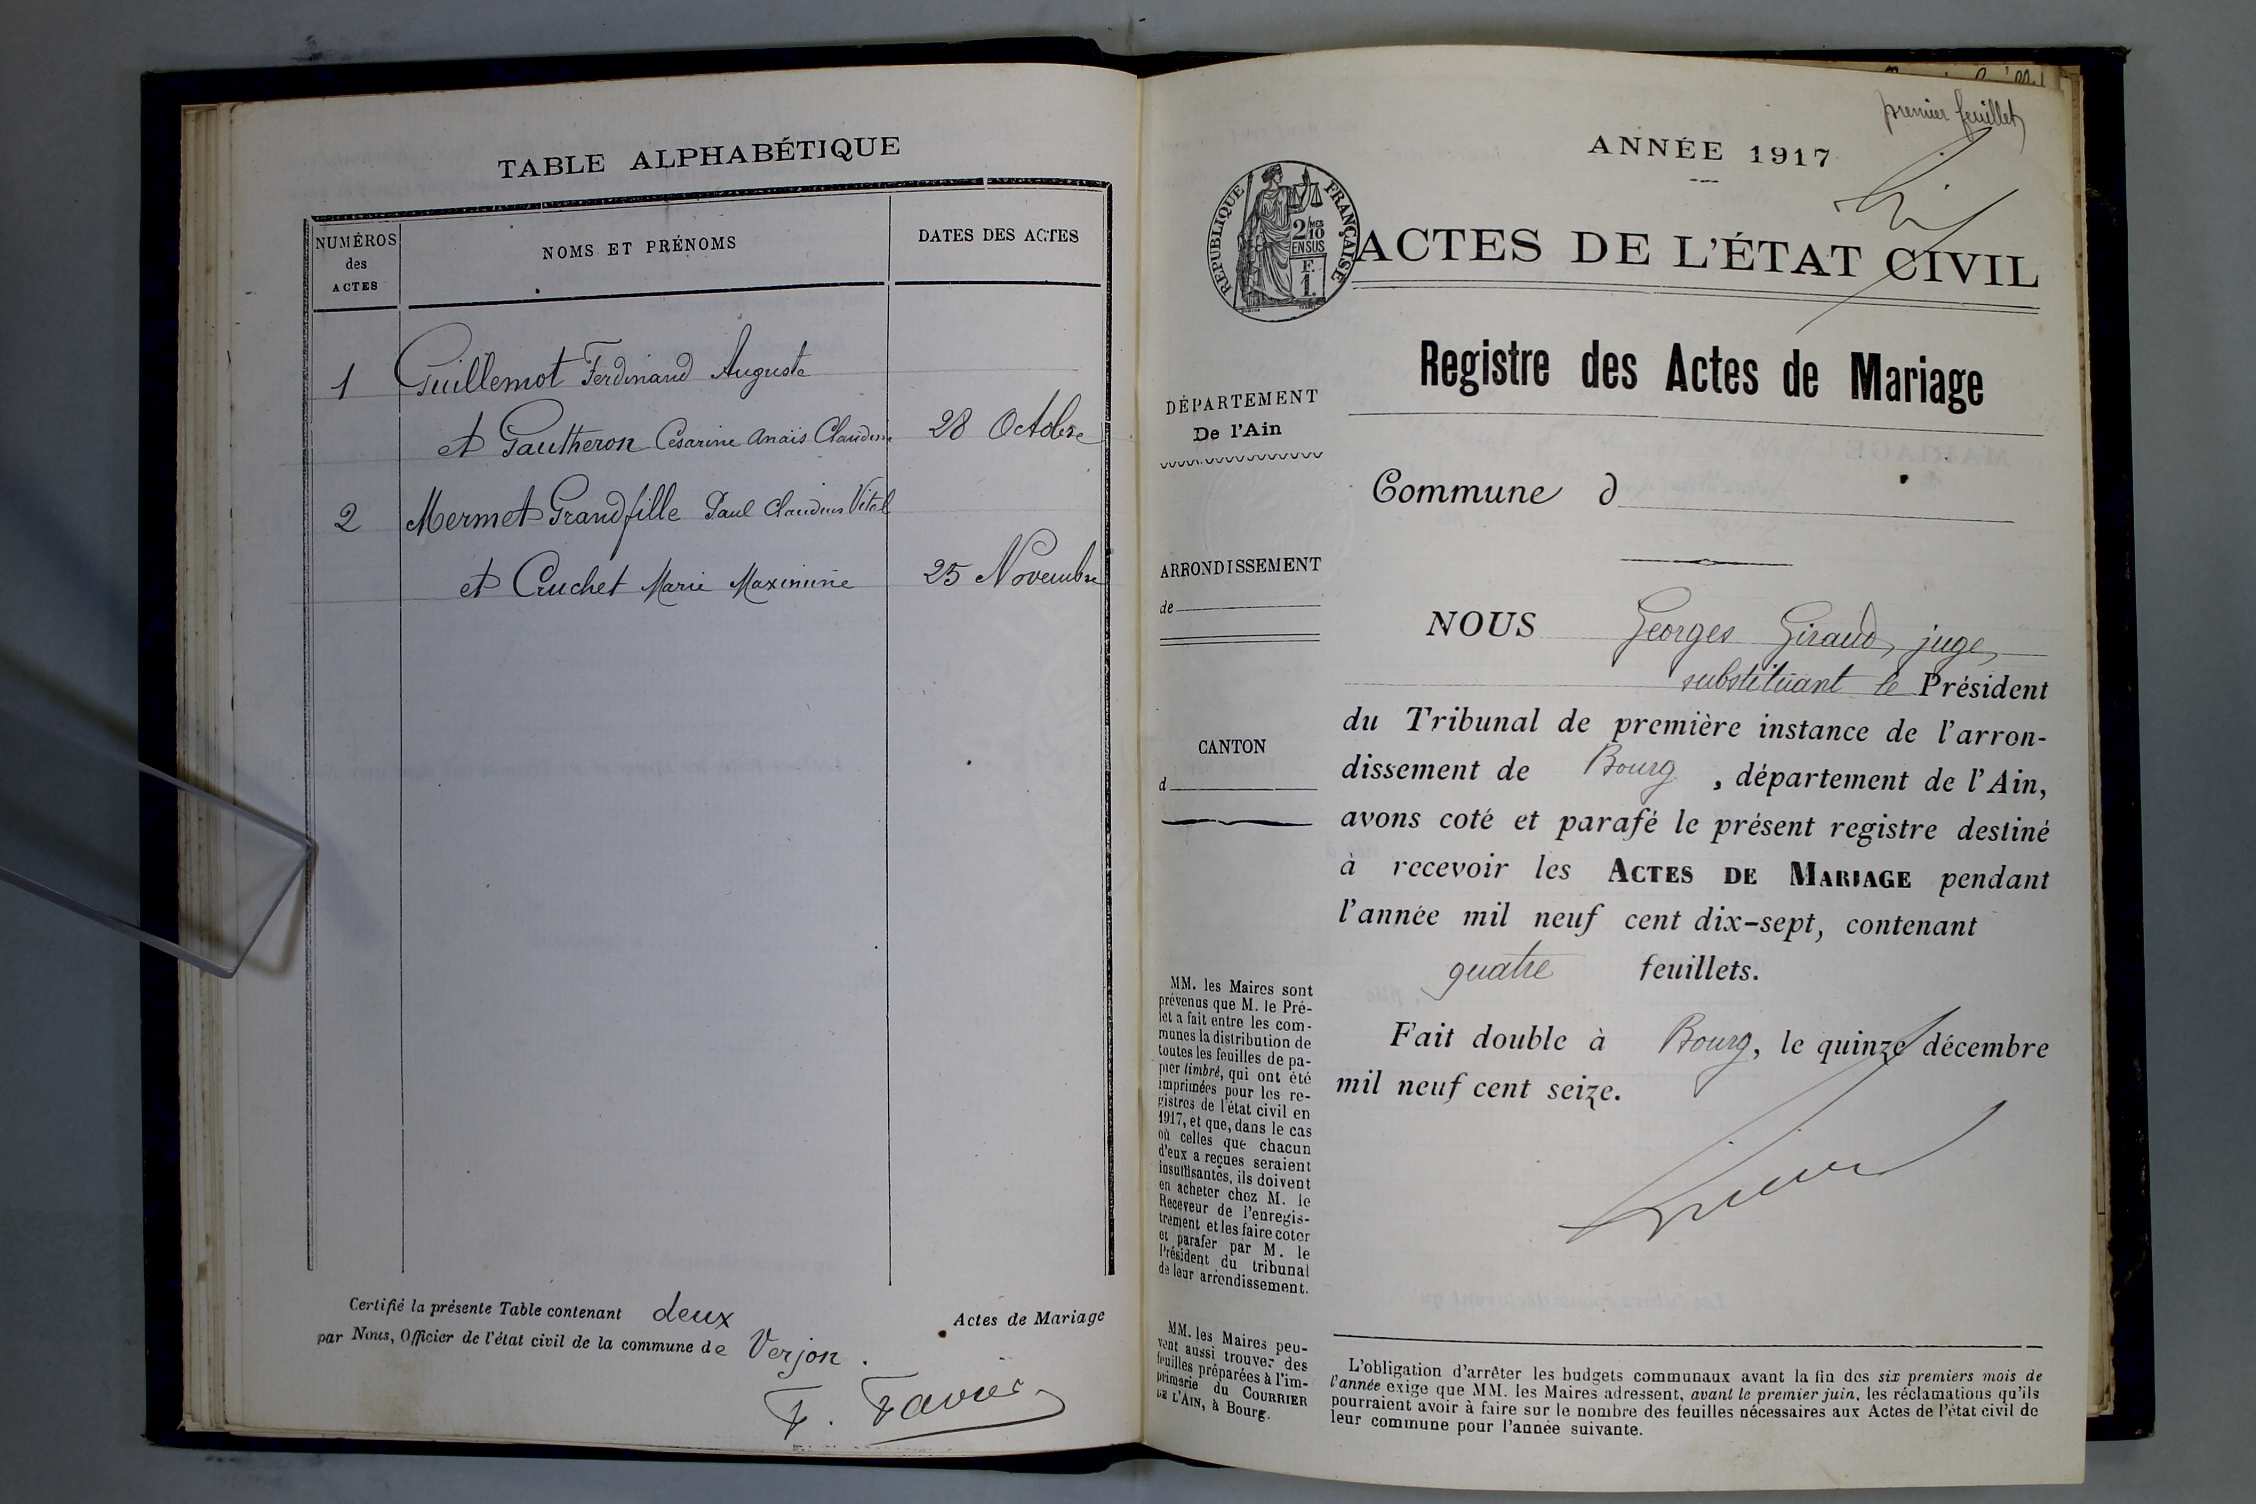 TABLE ALPHABÉTIQUE
NUMÉROS
des
ACTES
NOMS ET PRÉNOMS
DATES DES ACTES
1 Guillemot Ferdinand Auguste
et Gautheron Césarine Anaïs Claudine 28 Octobre
2 Mermet Grandfille Paul Claudius Vital
et Cruchet Marie Maximine 25 Novembre
Certifié la présente Table contenant deux Actes de Mariage
par Nous, Officier de l'état civil de la commune de Verjon.
F. Favier
premier feuillet
ANNÉE 1917
RÉPUBLIQUE FRANÇAISE
2/10 MES
EN SUS
F.
1.
ACTES DE L'ÉTAT CIVIL
Registre des Actes de Mariage
DÉPARTEMENT
De l'Ain
Commune d
ARRONDISSEMENT
de
CANTON
d
NOUS Georges Giraud, juge,
substituant le Président
du Tribunal de première instance de l'arron-
dissement de Bourg, département de l'Ain,
avons coté et parafé le présent registre destiné
à recevoir les ACTES DE MARIAGE pendant
l'année mil neuf cent dix-sept, contenant
quatre feuillets.
Fait double à Bourg, le quinze décembre
mil neuf cent seize.
MM. les Maires sont
prévenus que M. le Pré-
fet a fait entre les com-
munes la distribution de
toutes les feuilles de pa-
pier timbré, qui ont été
imprimées pour les re-
gistres de l'état civil en
1917, et que, dans le cas
où celles que chacun
d'eux a reçues seraient
insuffisantes, ils doivent
en acheter chez M. le
Receveur de l'enregis-
trement et les faire coter
et parafer par M. le
Président du tribunal
de leur arrondissement.
MM. les Maires peu-
vent aussi trouver des
feuilles préparées à l'im-
primerie du COURRIER
DE L'AIN, à Bourg.
L'obligation d'arrêter les budgets communaux avant la fin des six premiers mois de
l'année exige que MM. les Maires adressent, avant le premier juin, les réclamations qu'ils
pourraient avoir à faire sur le nombre des feuilles nécessaires aux Actes de l'état civil de
leur commune pour l'année suivante.